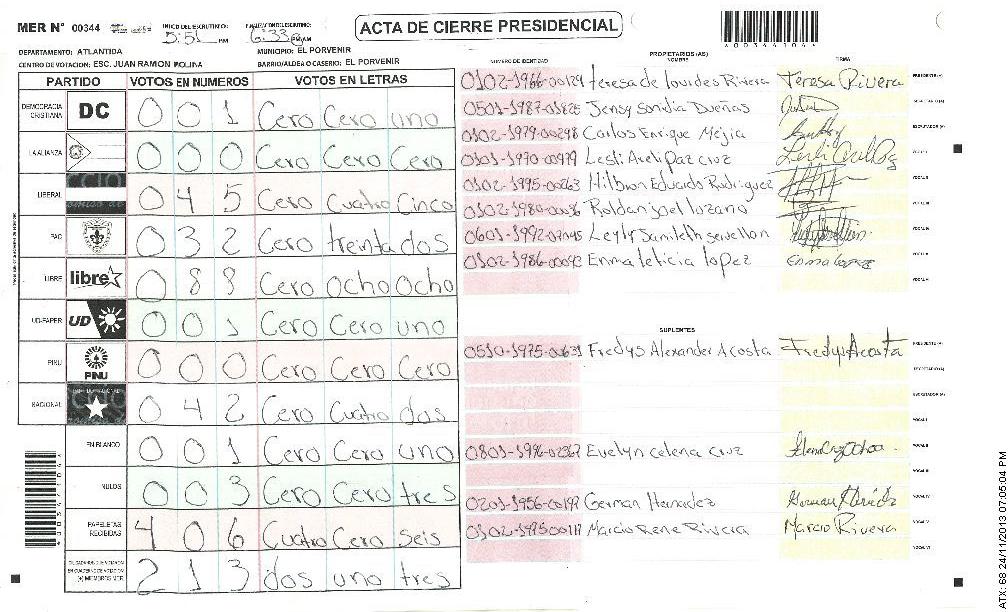 MER Nº 00344
INICIO DEL ESCRUTINIO: 5:51 PM
6:33 PM
ACTA DE CIERRE PRESIDENCIAL
DEPARTAMENTO: ATLANTIDA
MUNICIPIO: EL PORVENIR
CENTRO DE VOTACION: ESC. JUAN RAMON MOLINA
BARRIO/ALDEA O CASERIO: EL PORVENIR
PARTIDO VOTOS EN NUMEROS VOTOS EN LETRAS
DEMOCRACIA CRISTIANA DC 0 0 1 Cero Cero uno
LA ALIANZA 0 0 0 Cero Cero Cero
LIBERAL 0 4 5 Cero Cuatro Cinco
PAC 0 3 2 Cero treinta dos
LIBRE libre 0 8 8 Cero Ocho Ocho
UD-FAPER UD 0 0 1 Cero Cero uno
PINU PINU 0 0 0 Cero Cero Cero
NACIONAL 0 4 2 Cero Cuatro dos
EN BLANCO 0 0 1 Cero Cero uno
NULOS 0 0 3 Cero Cero tres
PAPELETAS RECIBIDAS 4 0 6 Cuatro Cero seis
(+) MIEMBROS MER 2 1 3 dos uno tres
PROPIETARIOS (AS)
NUMERO DE IDENTIDAD NOMBRE FIRMA
0102-1966-00129 teresa de lourdes Rivera Teresa Rivera PRESIDENTE (A)
0501-1987-01825 Jensy Sonidia Dueñas SECRETARIO (A)
0102-1979-00298 Carlos Enrique Mejia ESCRUTADOR (A)
0101-1970-00979 Lesli Areli Paz cruz VOCAL I
0102-1995-00263 Hilbron Eduardo Rodriguez VOCAL II
0102-1980-00036 Roldan joel lozano VOCAL III
0601-1992- Leyly VOCAL IV
0102-1986-00092 Enma leticia lopez Enma Lopez VOCAL V
VOCAL VI
SUPLENTES
0510-1975-00631 Fredys Alexander Acosta Fredys Acosta PRESIDENTE (A)
SECRETARIO (A)
ESCRUTADOR (A)
VOCAL I
0801-1996-02367 Evelyn celena cruz VOCAL II
VOCAL III
0201-1956-00197 German Hernandez VOCAL IV
0102-1975-00117 Marcio Rene Rivera Marcio Rivera VOCAL V
VOCAL VI
ATX: 68 24/11/2013 07:05:04 PM